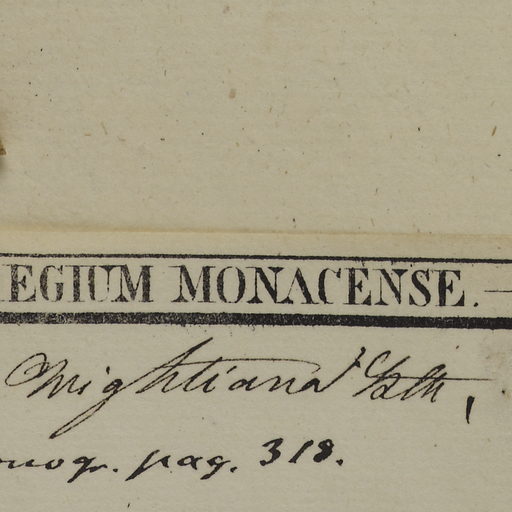 EGIUM MONACENSE.
Wightiana
onogr. pag. 318.